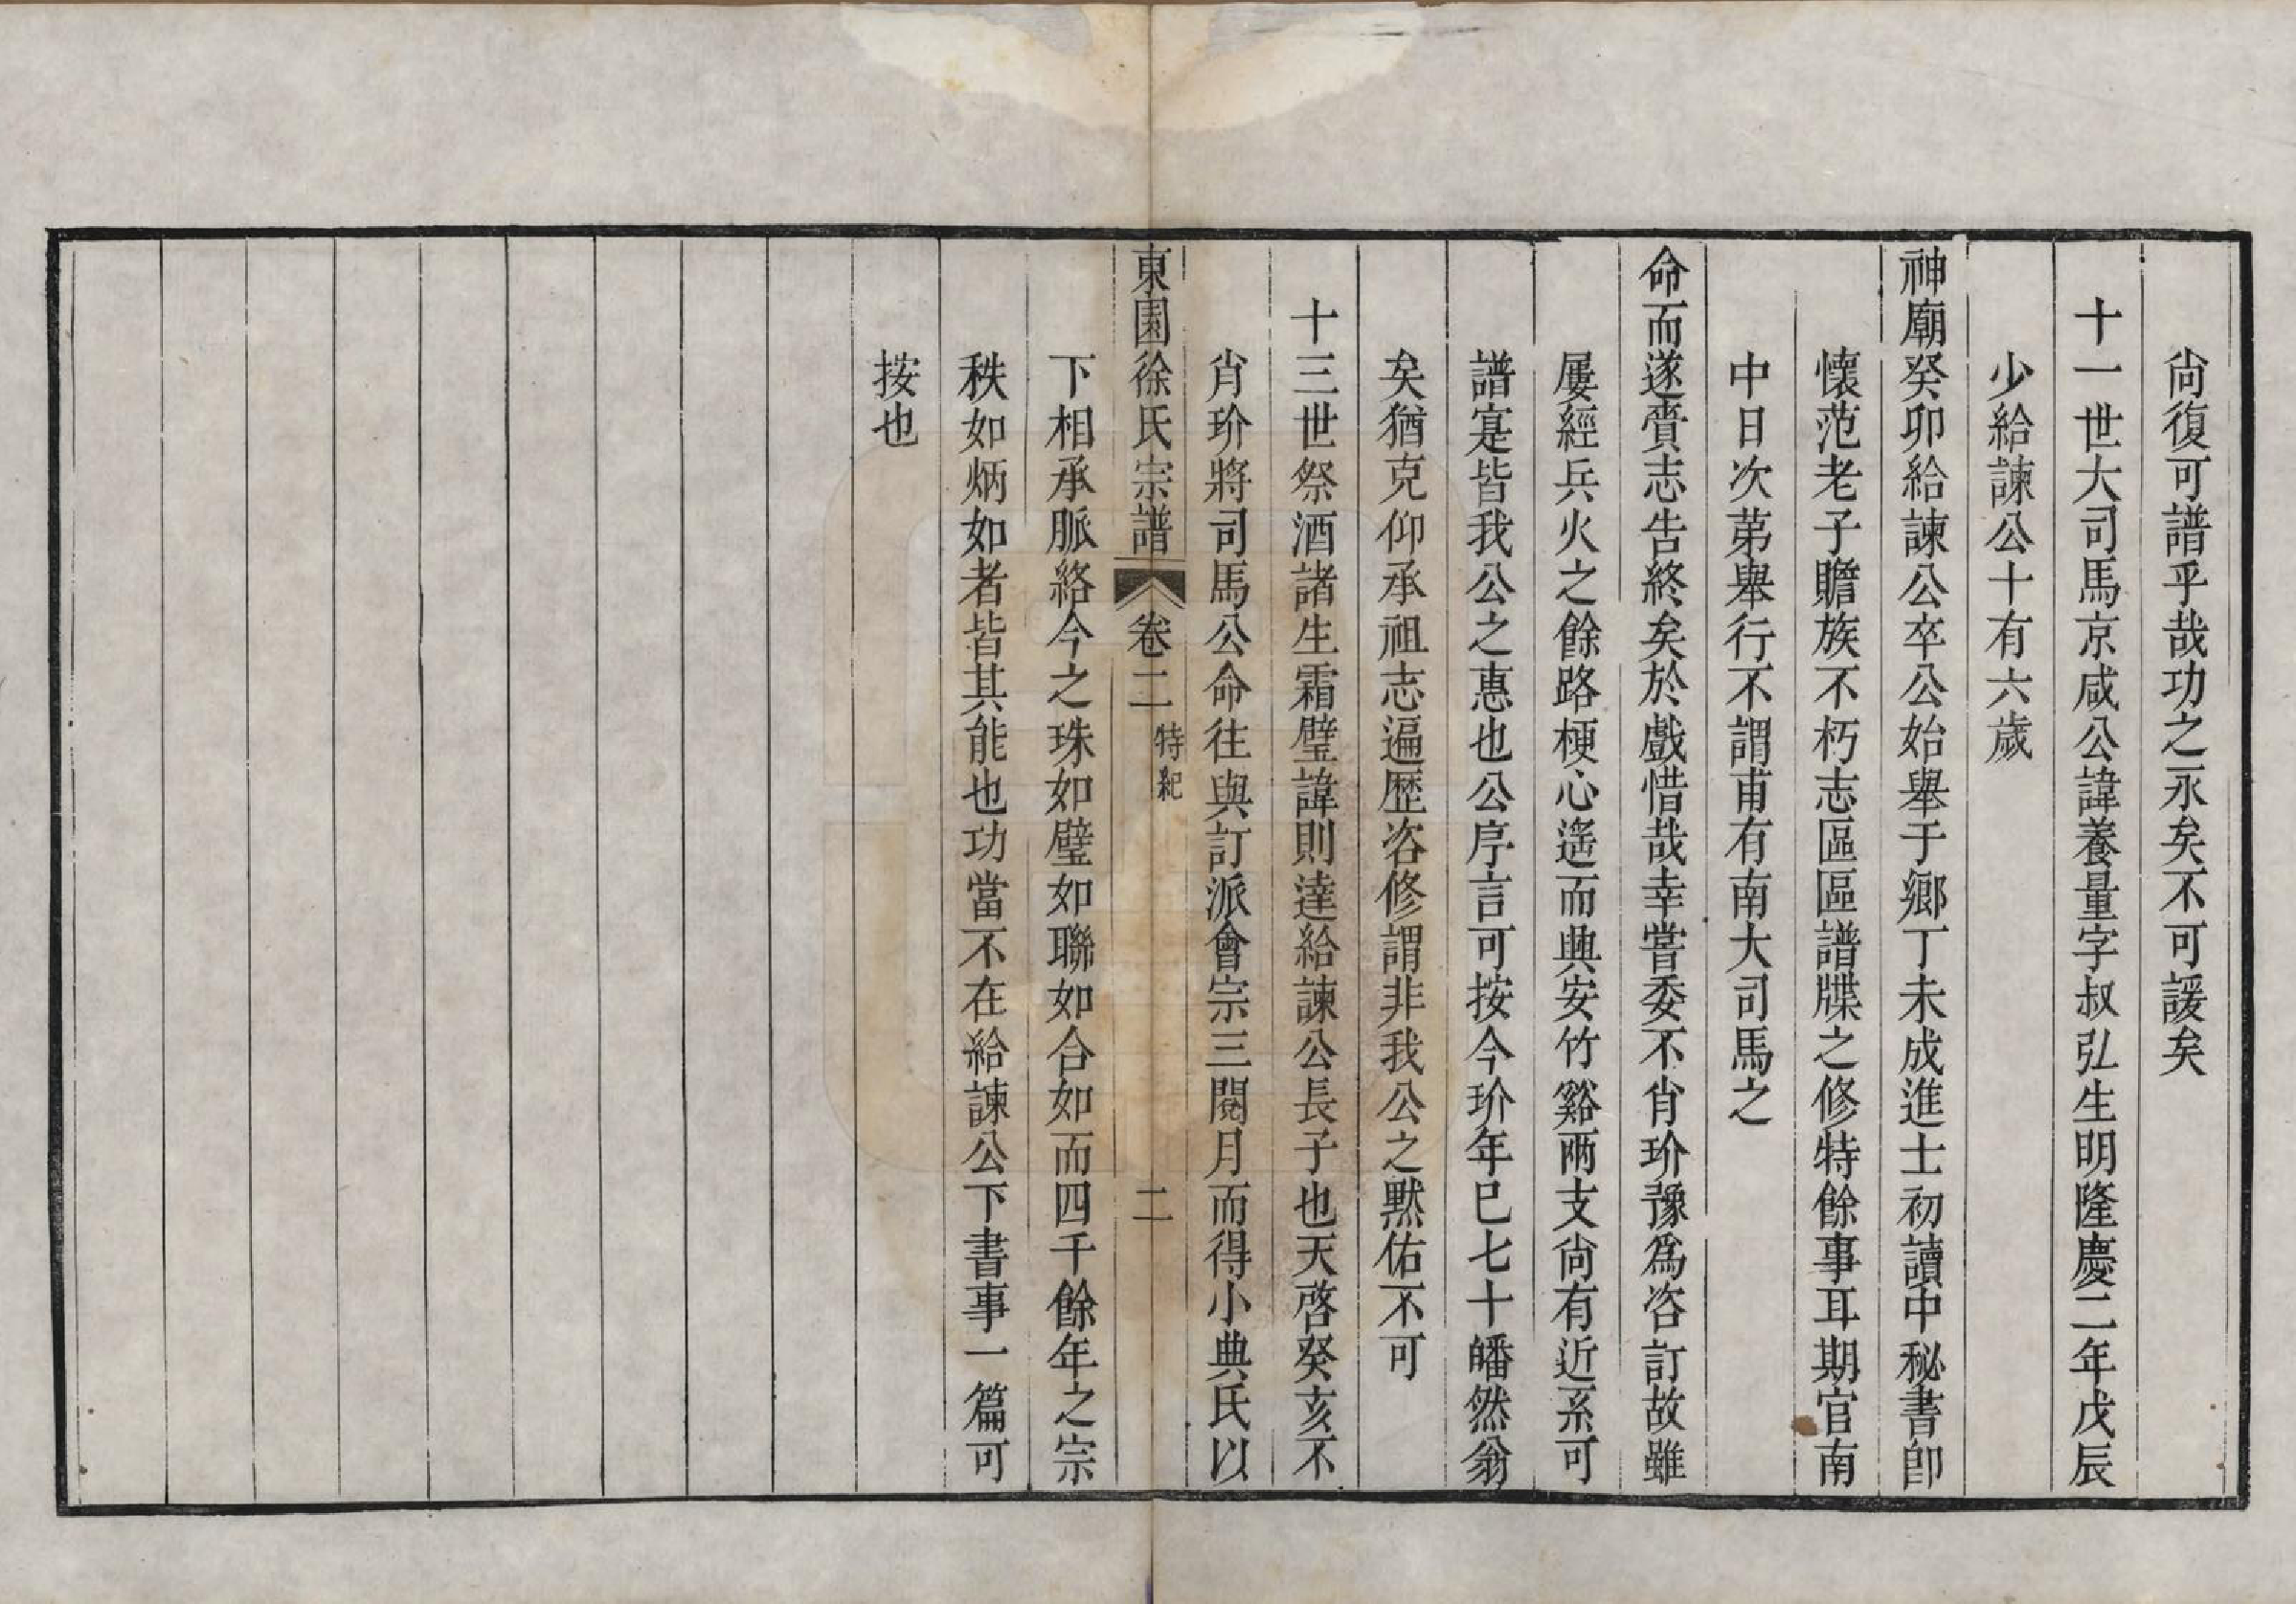 尙復可譜乎哉功之永矣不可諼矣
十一世大司馬京咸公諱養量字叔弘生明隆慶二年戊辰
少給諫公十有六歲
神廟癸卯給諫公卒公始舉于鄉丁未成進士初讀中秘書卽
懷范老子贍族不朽志區區譜牒之修特餘事耳期官南
中日次苐舉行不謂甫有南大司馬之
命而遂賫志告終矣於戲惜哉幸嘗委不肖玠豫爲咨訂故雖
屢經兵火之餘路梗心遙而典安竹谿兩支尙有近系可
譜寔皆我公之惠也公序言可按今玠年已七十皤然翁
矣猶克仰承祖志遍歷咨修謂非我公之默佑不可
十三世祭酒諸生霜璧諱則達給諫公長子也天啓癸亥不
肖玠將司馬公命往與訂派會宗三閱月而得小典氏以
東園徐氏宗譜 卷二 特紀 二
下相承脈絡今之珠如璧如聯如合如而四千餘年之宗
秩如炳如者皆其能也功當不在給諫公下書事一篇可
按也